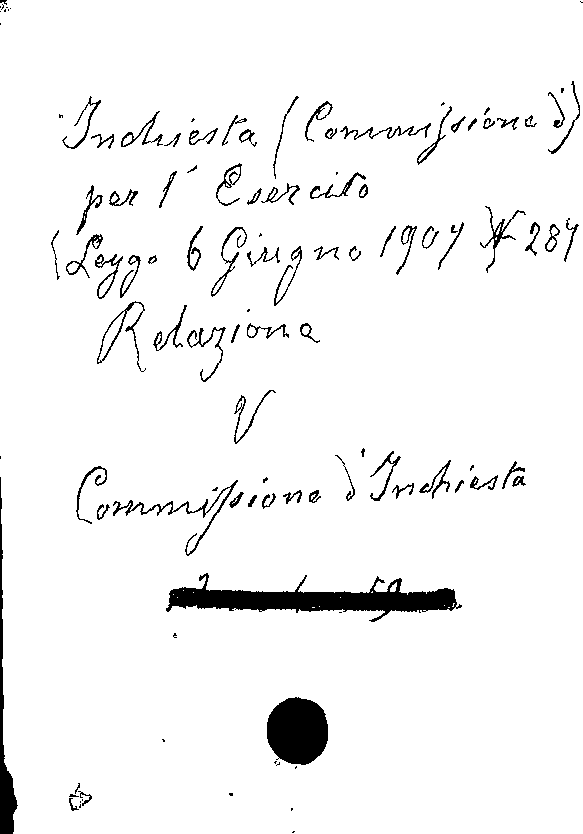 Inchiesta (Commissione d')
per l' Esercito
(Legge 6 Giugno 1907 N 287)
Relazione
V
Commissione d'Inchiesta